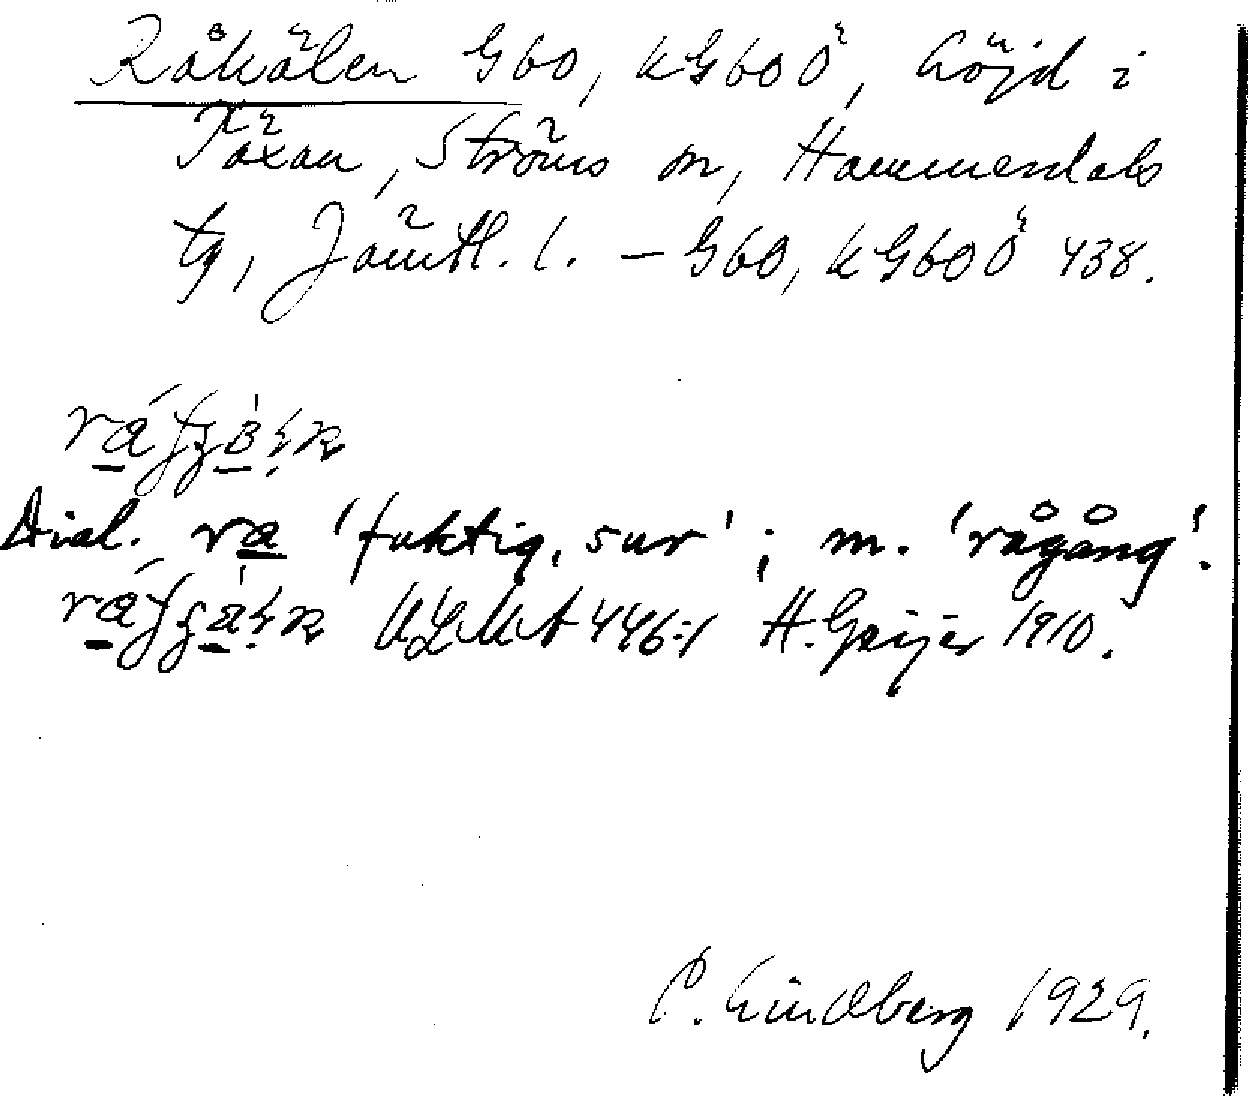 Råkälen G60, kG60 Ö, höjd i
Täxan, Ströms sn, Hammerdals
tg, Jämtl. l. – G60, kG60 Ö 438.
Dial. ra 'fuktig, sur'; m. 'rågång'.
ULMA 446:1 H. Geijer 1910.
P. Lindberg 1929.